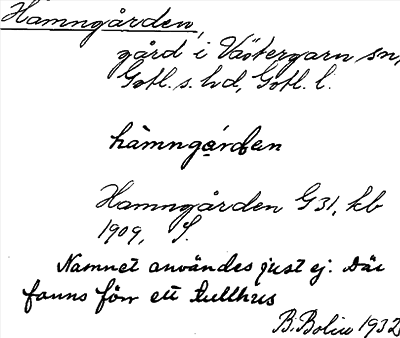 Hamngården,
gård i Västergarn sn,
Gotl. s. hd, Gotl. l.
hàmngá̱rđen
Hamngården G31, kb
1909, S.
Namnet användes just ej. Där
fanns förr ett tullhus
B. Bolin 1932